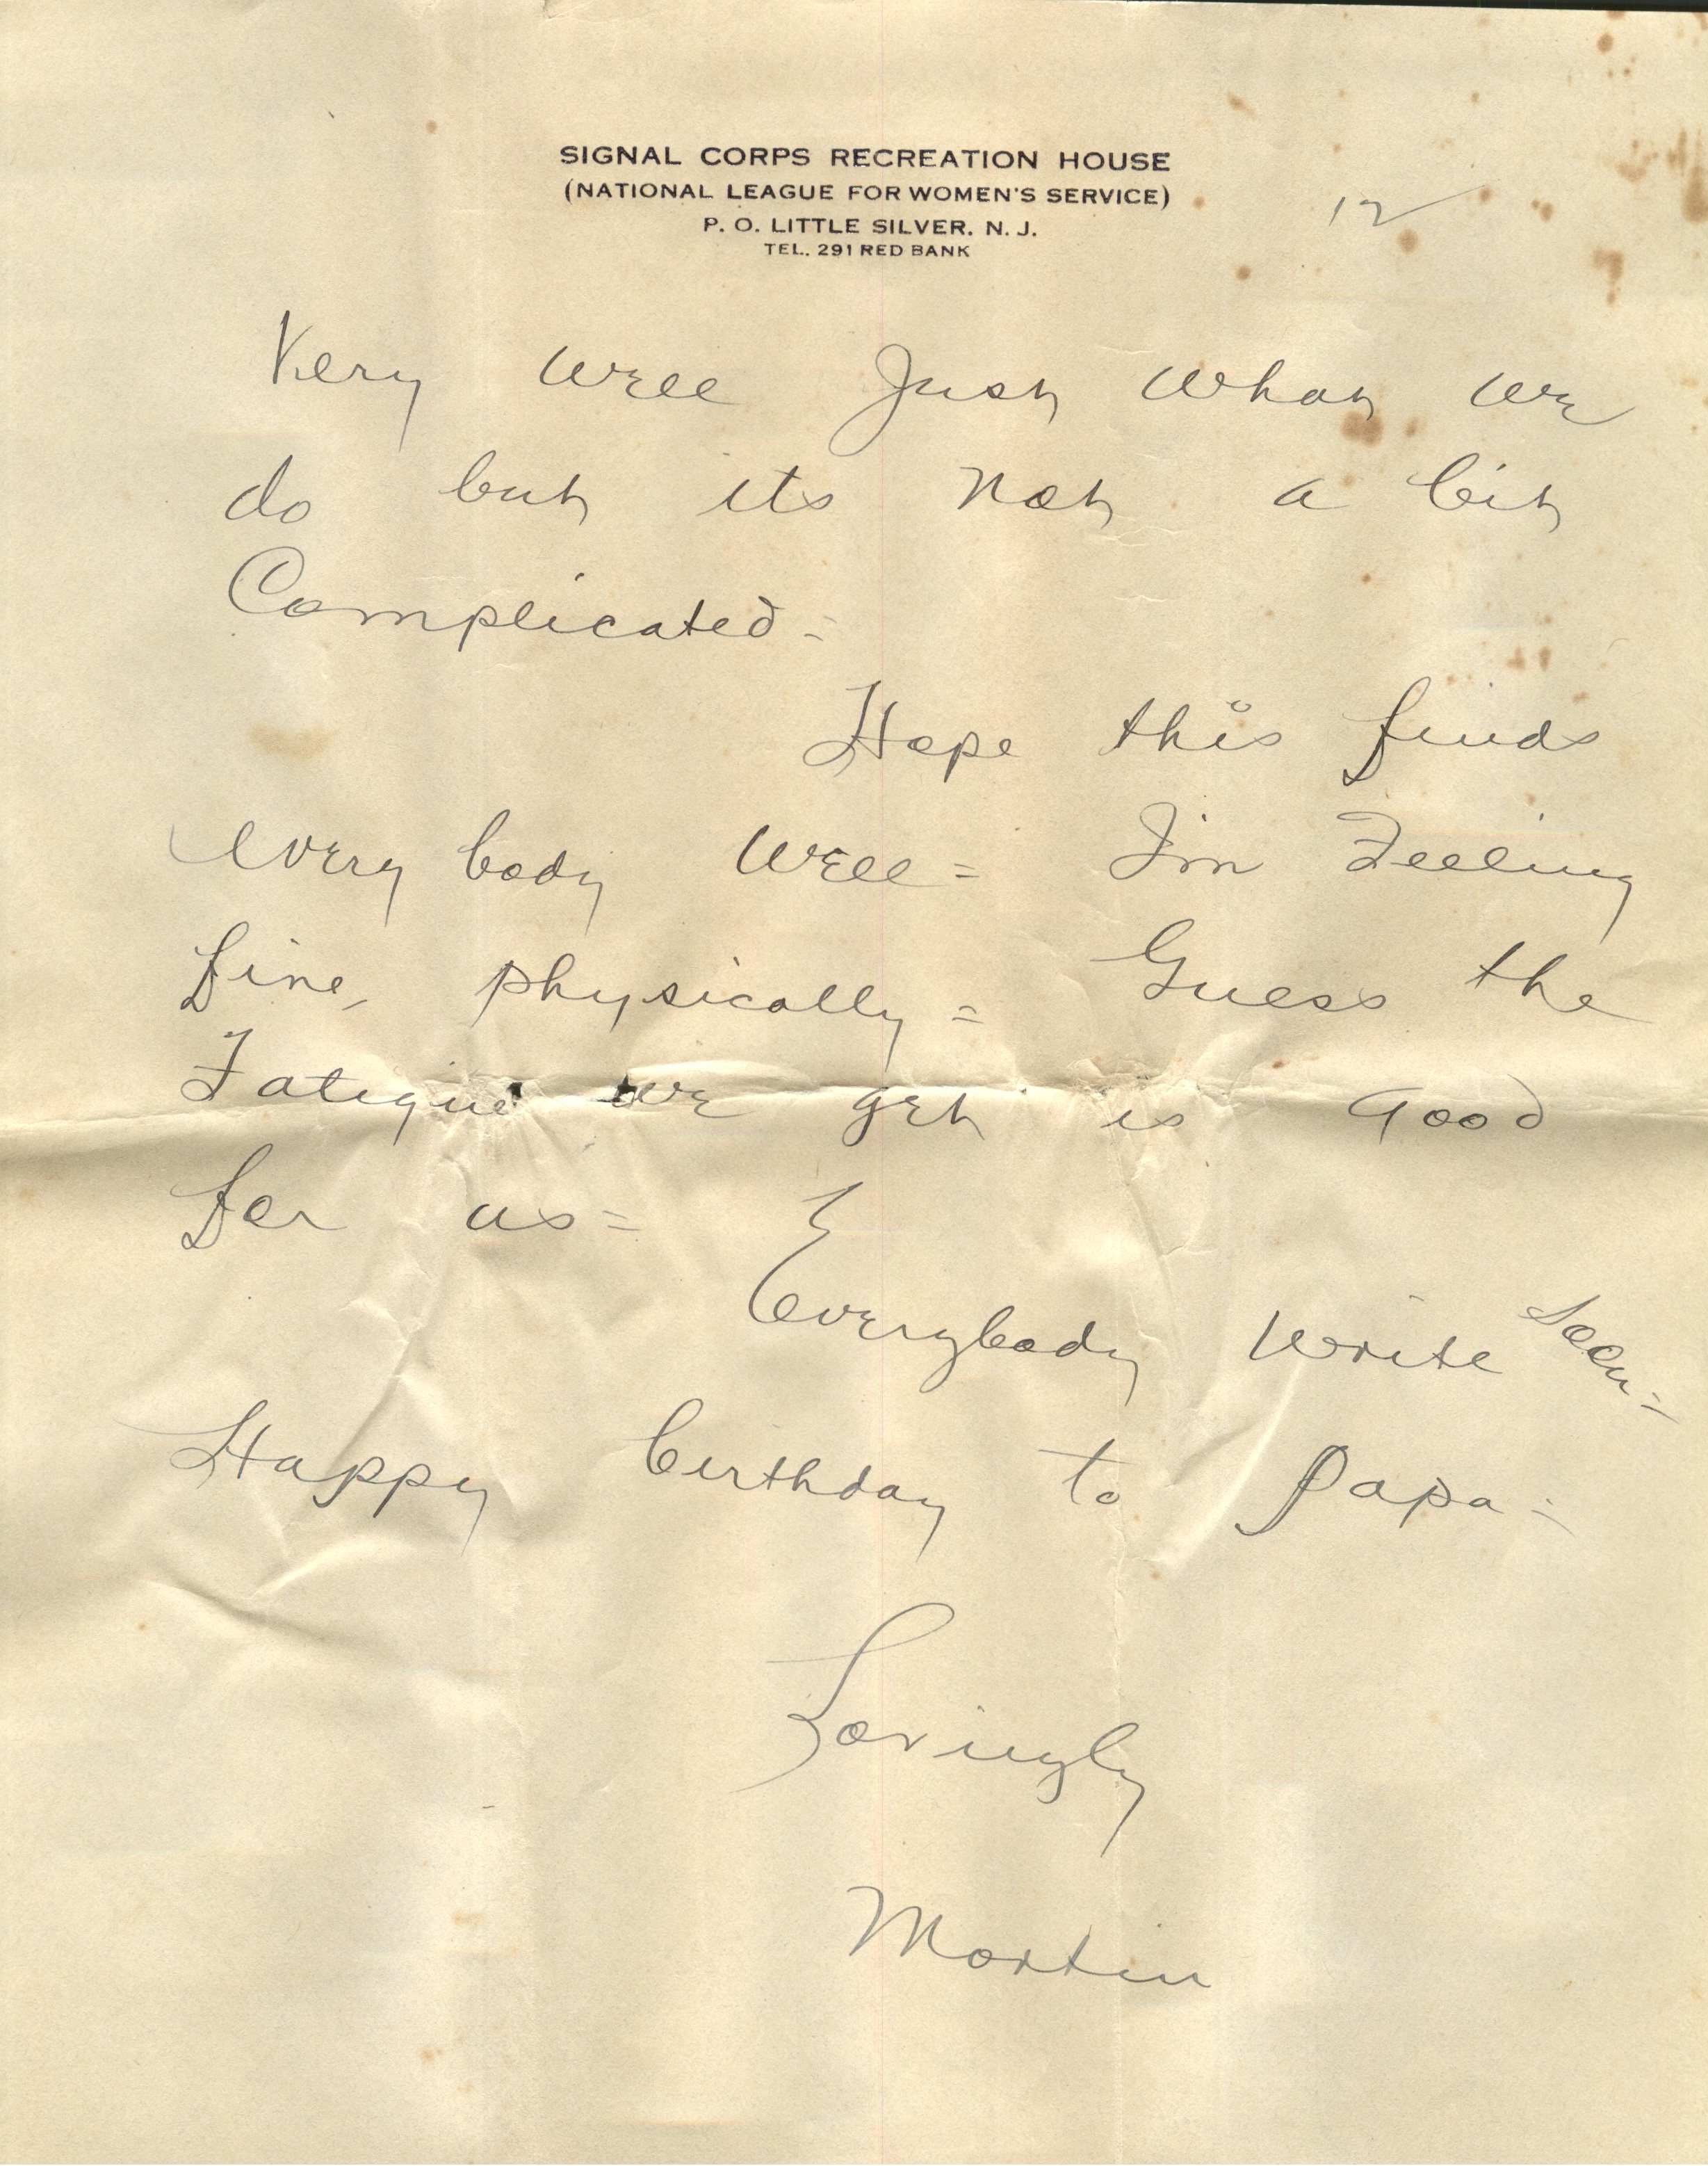 SIGNAL CORPS RECREATION HOUSE
(NATIONAL LEAGUE FOR WOMEN'S SERVICE)
P. O. LITTLE SILVER. N. J.
TEL. 291 RED BANK
12
Very well Just what we
do but its not a bit
Complicated =
Hope this finds
every body well = I'm Feeling
fine, physically = Guess the
Fatigue we get is Good
for us =
Everybody write soon =
Happy birthday to Papa =
Lovingly
Martin